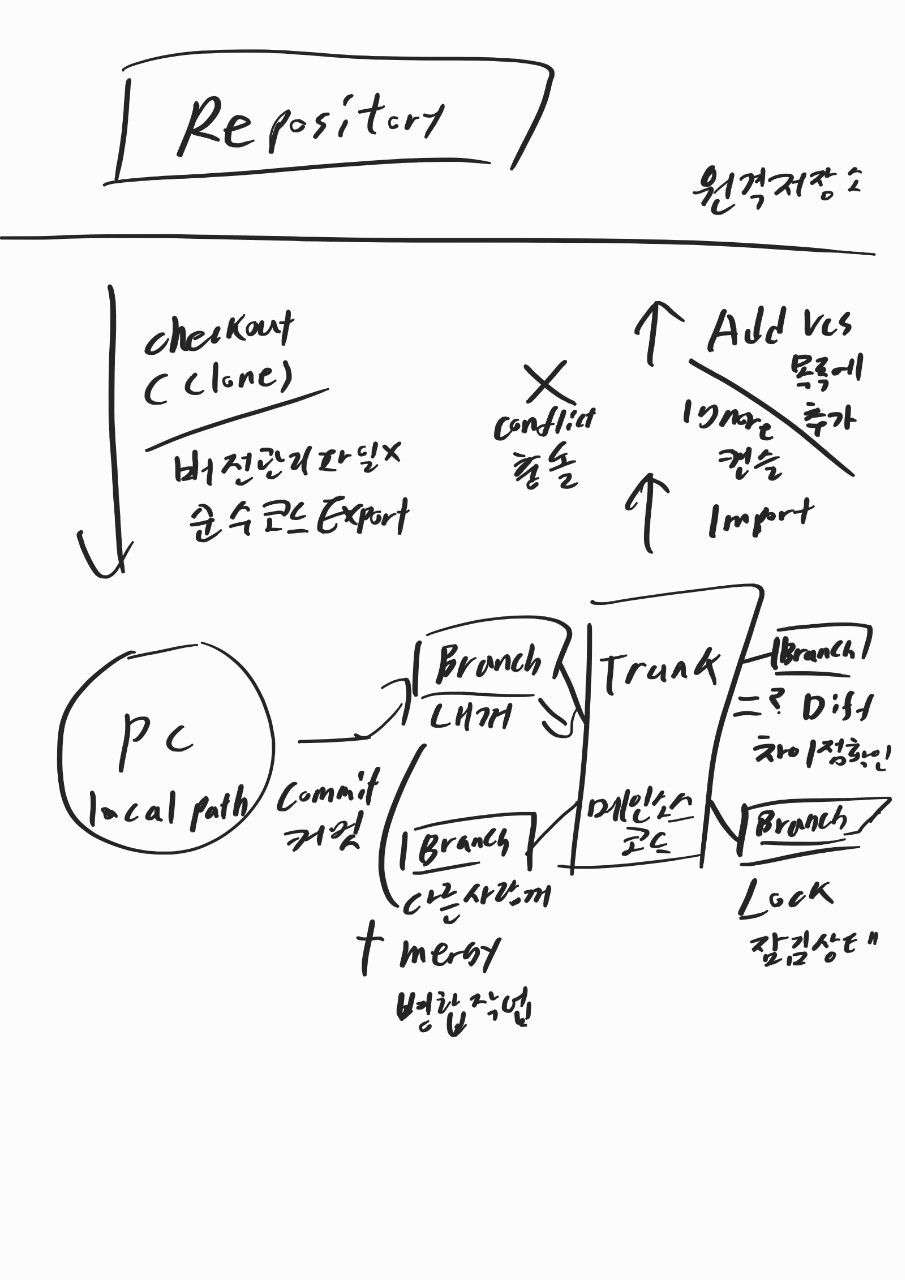 Repository
원격저장소
checkout
(Clone)
버전관리파일x
순수코드Export
Conflict
충돌
Add vcs
목록에
추가
Ignore
캔슬
Import
PC
local path
Commit
커밋
Branch
내꺼
Branch
다른사람꺼
mergy
병합작업
Trunk
메인소스
코드
Branch
=? Diff
차이점확인
Branch
Lock
잠김상태